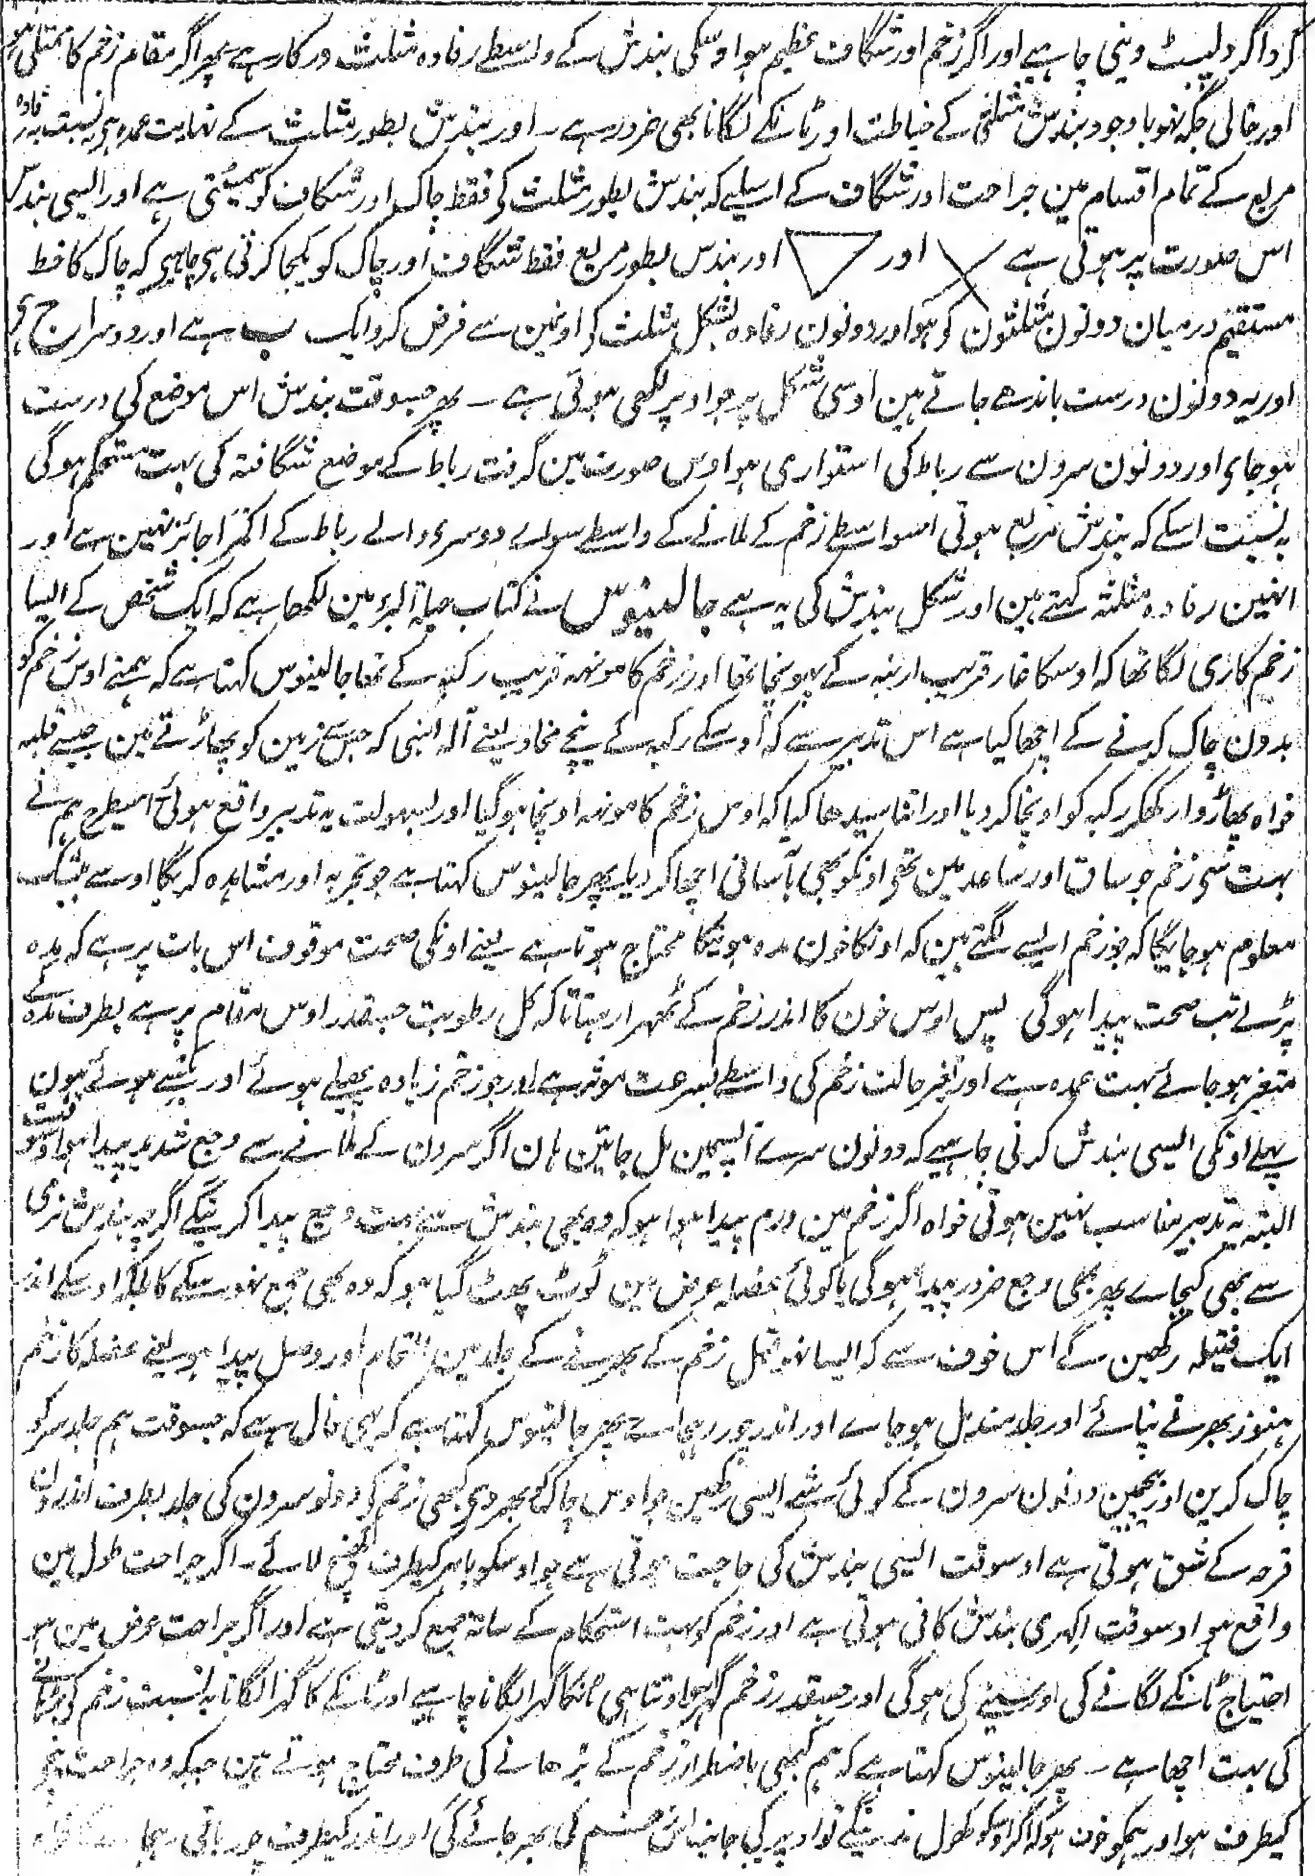 گرداگرد لپیٹ دینی چاہیے اور اگر زخم اور شگاف عظیم ہو اوسکی بندش کے واسطے رفادہ مثلث درکار ہے پھر اگر مقام زخم کا ممتلی ہو
اور خالی جگہ نہو باوجود بندش مثلثی کے خیاطت اور ٹانکے لگانا بھی ضرور ہے ۔ اور بندش بطور مثلث کے نہایت عمدہ ہی بہ نسبت رفادہ
مربع کے تمام اقسام مین جراحت اور شگاف کے اسلیے کہ بندش بطور مثلث کو فقط چاک اور شگاف کو سمیٹتی ہے اور ایسی بندش
اس صورت پر ہوتی ہے اور اور بندس بطور مربع فقط شگاف اور چاک کو یکجا کرتی ہی چاہیے کہ چاک کا خط
مستقیم درمیان دونون مثلثون کو ہو اور دونون رفادہ بشکل مثلث کو اونمین سے فرض کرو ایک ب ہے اور دوسرا ج ہی
اور یہ دونون درست باندھے جاتے ہین اوسی شکل پر جو اوپر لکھی ہوئی ہے ۔ پھر جسوقت بندش اس موضع کی درست
ہو جای اور دونون سرون سے رباط کی استواری ہو اوس صورت مین گرفت رباط کے موضع شگافتہ کی بہت مستحکم ہوگی
بہ نسبت اسکے کہ بندش مربع ہوتی اسواسطے زخم کے ملانے کے واسطے سواے دوسرے والے رباط کے اکثر اجائز نہین ہے اور
انھین رفادہ مثلثہ کہتے ہین اور شکل بندش کی یہ ہے جالینوس نے کتاب حیلۃ البرء مین لکھا ہے کہ ایک شخص کے ایسا
زخم کاری لگا تھا کہ اوسکا غار قریب اربنہ کے پہونچا تھا اور زخم کا مونھہ قریب رکبہ کے تھا جالینوس کہتا ہے کہ ہمنے اوس زخم کو
بدون چاک کرنے کے اچھا کیا ہے اس تدبیر سے کہ اوسکے رکبہ کے نیچے مخاد یعنے آلہ اہنی کہ جس سے زمین کو پھاڑتے ہین جیسے قلبہ
خواہ پھاڑوار کھکر رکبہ کو اونچا کر دیا اور اتنا سیدھا کیا کہ اوس زخم کا مونھہ اونچا ہوگیا اور بسہولت یہ تدبیر واقع ہوئی اسیطرح ہم نے
بہت سی زخم جو ساق اور ساعد مین تھی اونکو بھی بآسانی اچھا کر دیا پھر جالینوس کہتا ہے جو تجربہ اور مشاہدہ کریگا اوسے بیشک
معلوم ہو جائیگا کہ جو زخم ایسے لگتے ہین کہ اونکا خون مدہ ہونیکا محتاج ہوتا ہے یعنے اونکی صحت موقوف اس بات پر ہے کہ مدہ
پڑے تب صحت پیدا ہوگی پس اوس خون کا اندر زخم کے ٹھہرا رہنا تا کہ کل رطوبت جسقدر اوس مقام پر ہے بطرف مدہ کے
متغیر ہو جائے بہت عمدہ ہے اور تغیر حالت زخم کی واسطے بسرعت موثر ہے اور جو زخم زیادہ پھیلے ہوئے اور پھٹے ہوئے ہون
پہلے اونکی ایسی بندش کرنی چاہیے کہ دونون سرے آپسمین مل جائین ہان اگر سرون کے ملانے سے وجع شدید پیدا ہو اوسوقت
البتہ یہ تدبیر مناسب نہین ہوتی خواہ اگر زخم مین ورم پیدا ہوا ہو کہ وہ بھی بندش سے بہت وجع پیدا کرینگے اگرچہ بندش نرمی
سے بھی کیجاے پھر بھی وجع ضرور پیدا ہوگی یا کوئی عضلہ عرض مین ٹوٹ پھوٹ گیا ہو کہ وہ بھی جمع نہو سکے گا بلکہ اوسکے اندر
ایک فتیلہ رکھین گے اس خوف سے کہ ایسا نہو قبل زخم کے بھرنے کے جلد مین التحام اور وصل پیدا ہو یعنے عضلہ کا زخم
ہنوز بھرنے نپائے اور جلد مندمل ہو جاے اور اندر چور رہجاے پھر جالینوس کہتا ہے کہ یہی حال ہے کہ جسوقت ہم جلد سر کو
چاک کرین اور بیچمین دونون سرون کے کوئی شے ایسی رکھین جو اوس چاک کو بھر دی کبھی زخم کی دونو سرون کی جلد بطرف اندرون
قرحہ کے شق ہوتی ہے اوسوقت ایسی بندش کی حاجت ہوتی ہے جو اوسکو باہر کیطرف کھینچ لائے ۔ اگر جراحت طول مین
واقع ہو اوسوقت اکہری بندش کافی ہوتی ہے اور زخم کو بہت استحکام کے ساتھ جمع کر دیتی ہے اور اگر جراحت عرض مین ہو
احتیاج ٹانکے لگانے کی اور سینے کی ہوگی اور جسقدر زخم گہرا ہو اوتنا ہی ٹانکا گہرا لگانا چاہیے اور ٹانکے کا گہرا لگانا بہ نسبت زخم کی بڑھانے
کی بہت اچھا ہے ۔ پھر جالینوس کہتا ہے کہ ہم کبھی باضطرار زخم کے بڑھانے کی طرف محتاج ہوتے ہین جبکہ وہ جراحت
کیطرف ہو اور ہمکو خوف ہو کہ اگر اوسکو طول ندینگے تو اوپر کی جانب اس قسم کی بھر جائے گی اور اندر کیطرف چور باقی رہجا